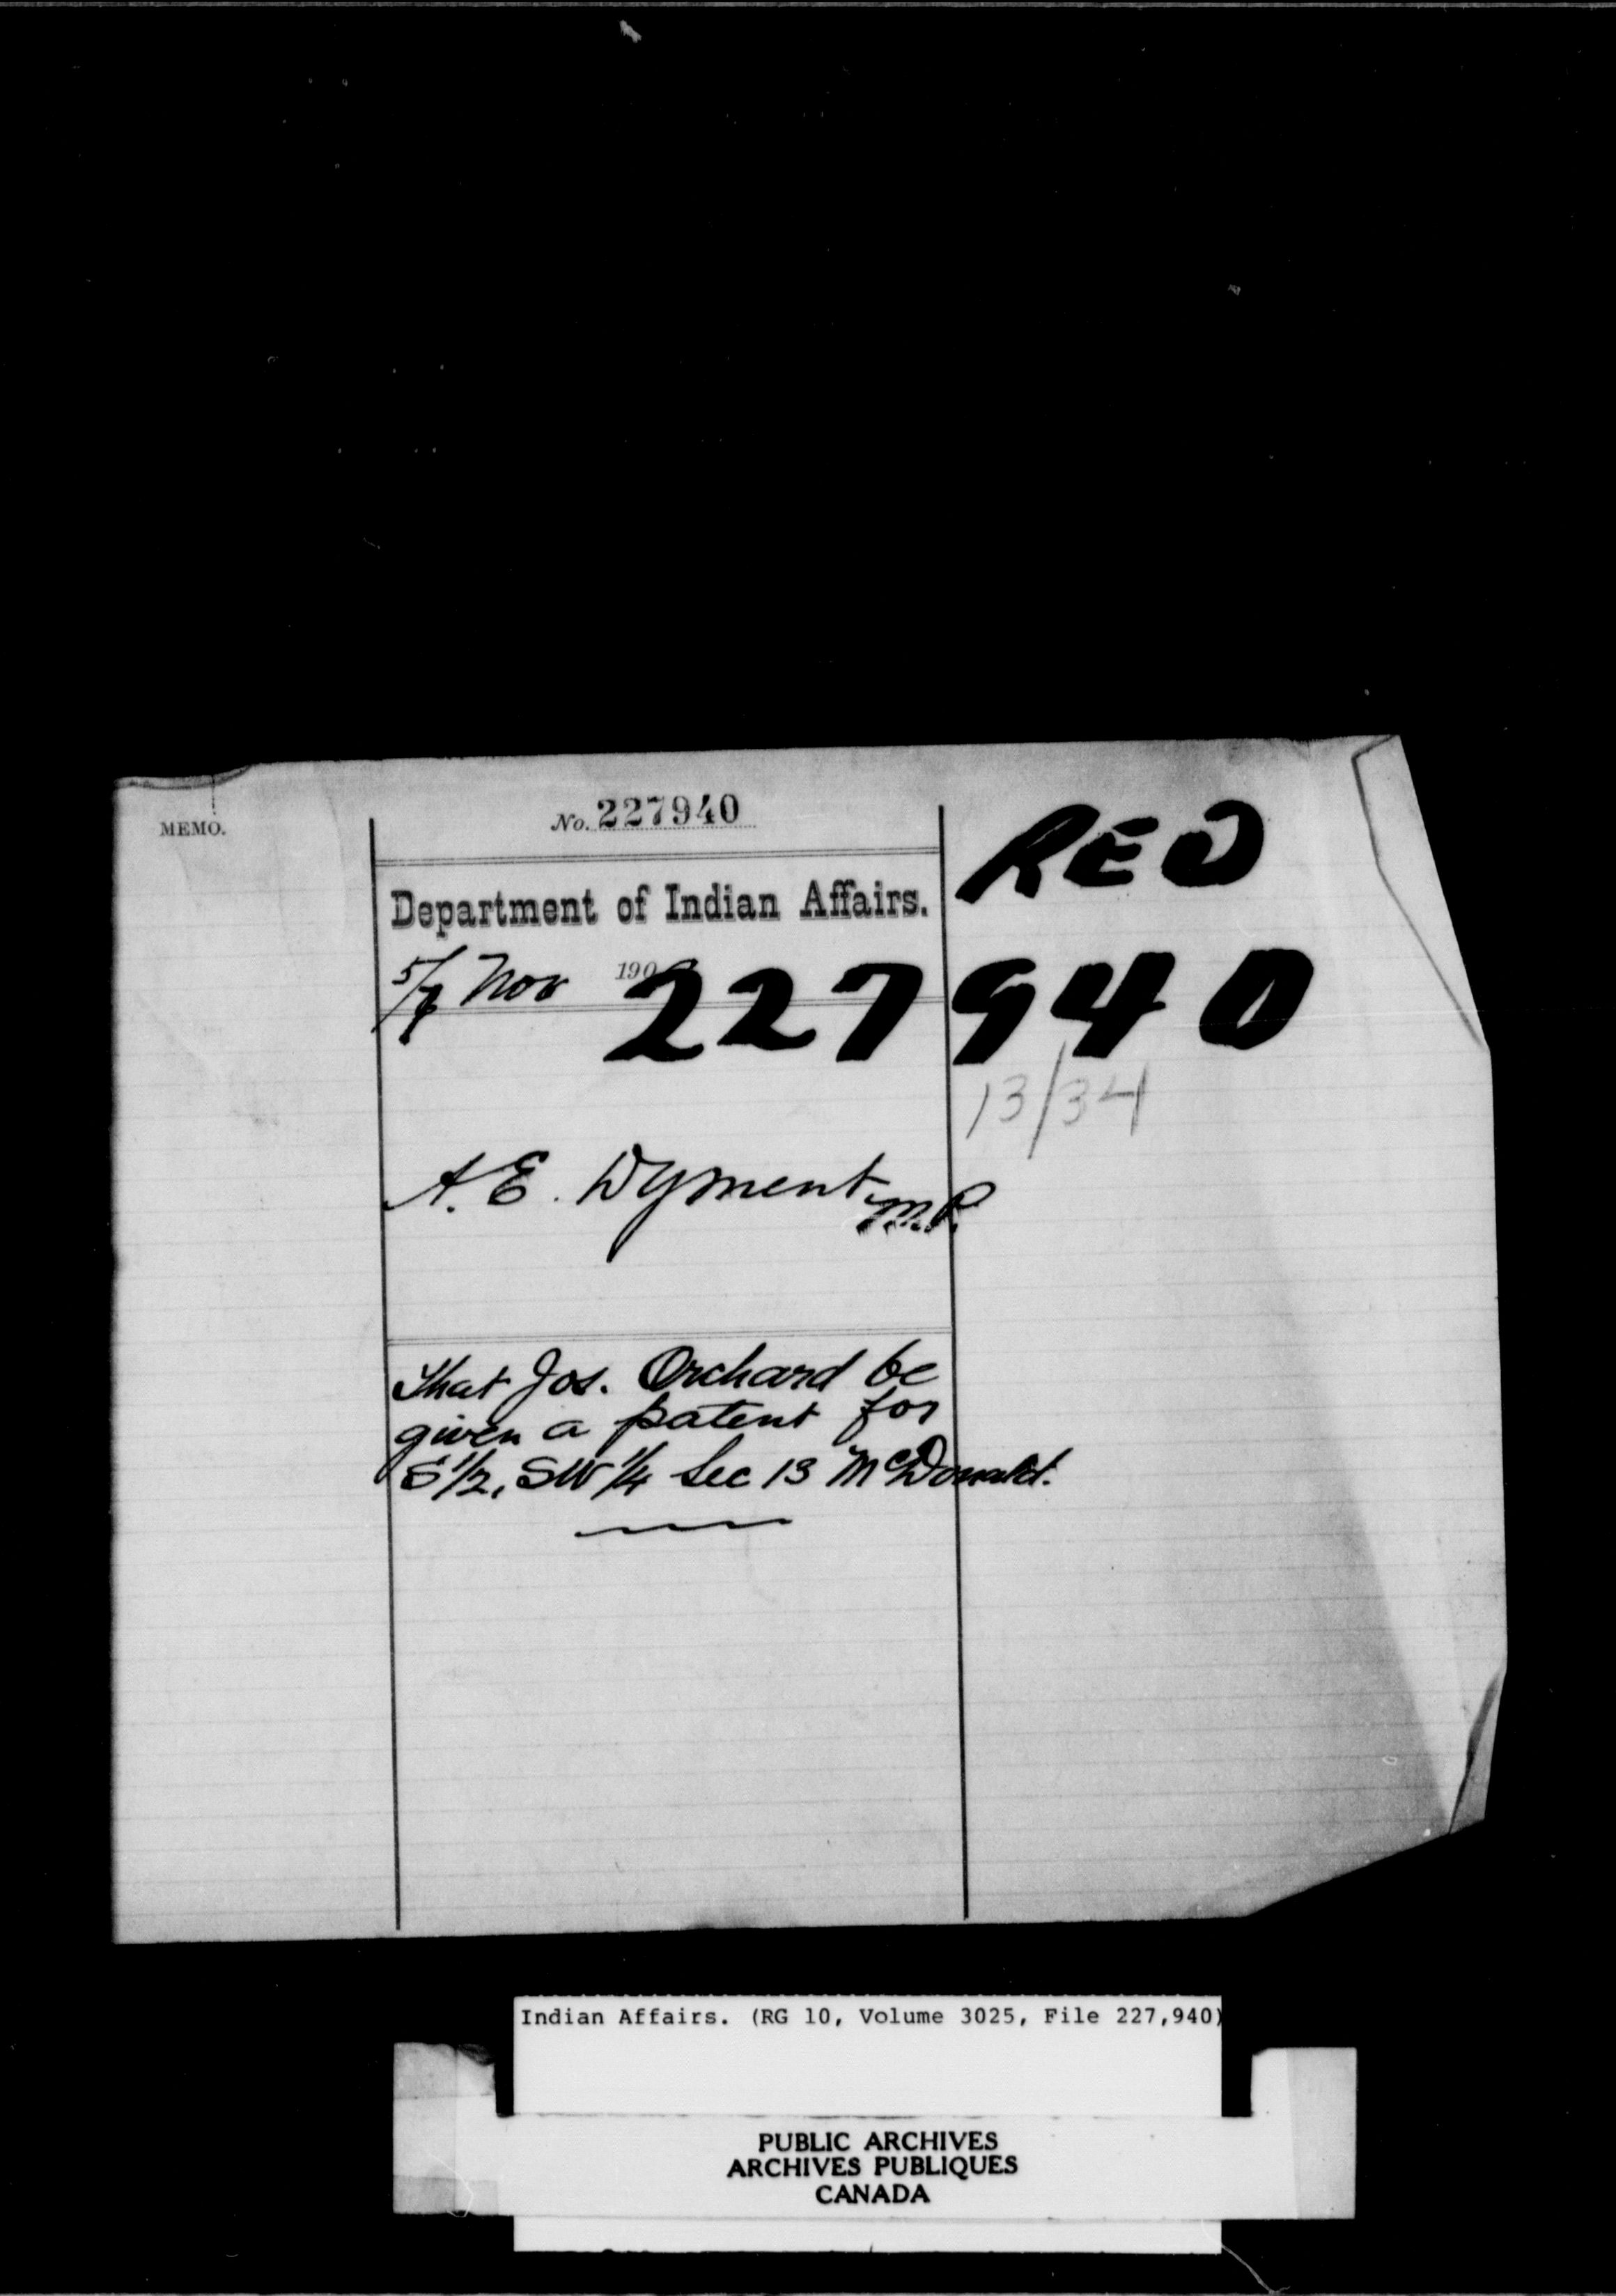 MEMO.
No. 227940
RED
Department of Indian Affairs.
5/7 Nov 190
227940
13/34
A. E. Dyment M.P.
That Jos. Orchard be
given a patent for
S 1/2, SW 1/4 Sec 13 McDonald.
Indian Affairs. (RG 10, Volume 3025, File 227,940)
PUBLIC ARCHIVES
ARCHIVES PUBLIQUES
CANADA